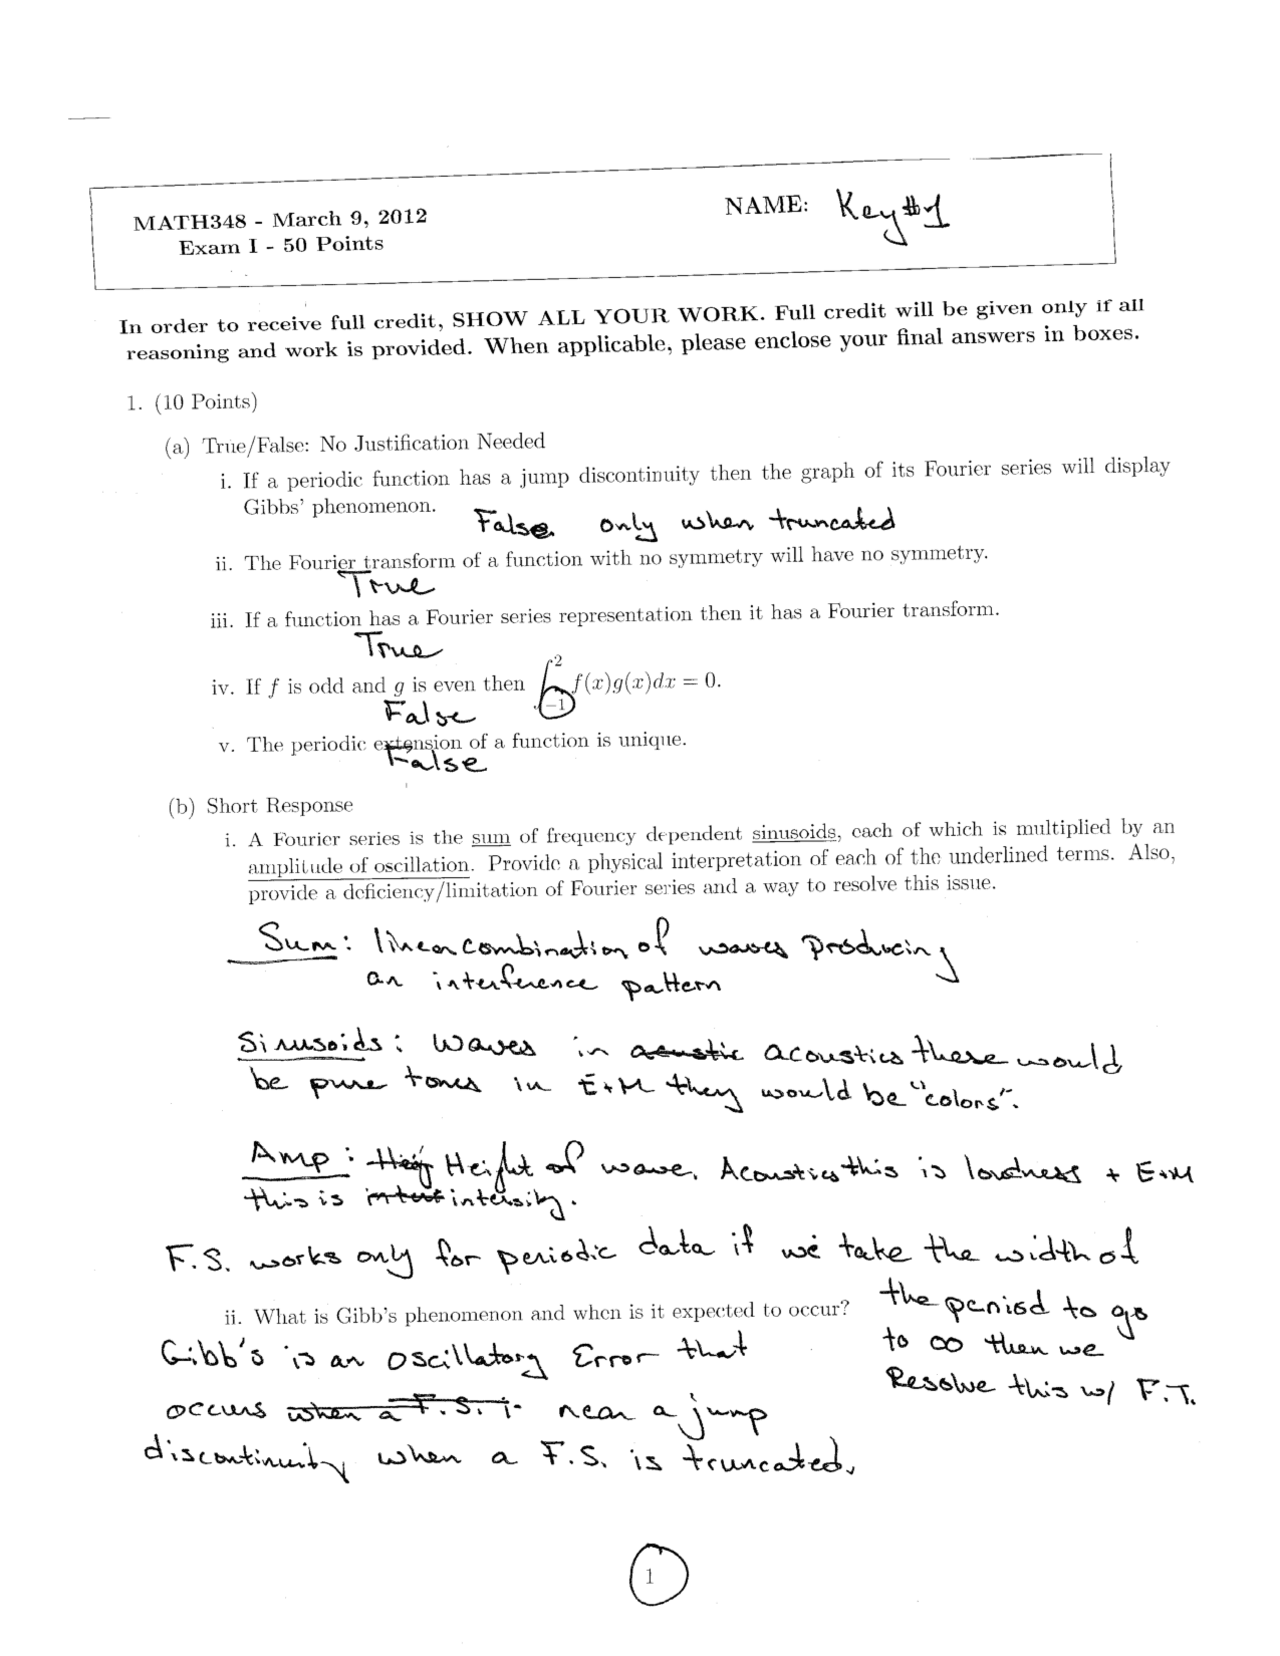 MATH348 - March 9, 2012
Exam I - 50 Points
NAME: Key #1
In order to receive full credit, SHOW ALL YOUR WORK. Full credit will be given only if all
reasoning and work is provided. When applicable, please enclose your final answers in boxes.
1. (10 Points)
(a) True/False: No Justification Needed
i. If a periodic function has a jump discontinuity then the graph of its Fourier series will display
Gibbs' phenomenon.
False. only when truncated
ii. The Fourier transform of a function with no symmetry will have no symmetry.
True
iii. If a function has a Fourier series representation then it has a Fourier transform.
True
iv. If f is odd and g is even then ∫_{-1}^{2} f(x)g(x)dx = 0.
False
v. The periodic extension of a function is unique.
False
(b) Short Response
i. A Fourier series is the sum of frequency dependent sinusoids, each of which is multiplied by an
amplitude of oscillation. Provide a physical interpretation of each of the underlined terms. Also,
provide a deficiency/limitation of Fourier series and a way to resolve this issue.
Sum: linear combination of waves producing
an interference pattern
Sinusoids: Waves in acustic acoustics these would
be pure tones in E+M they would be "colors".
Amp: Heig Height of wave. Acoustics this is loudness + E+M
this is intensity.
F.S. works only for periodic data if we take the width of
the period to go
to ∞ then we
Resolve this w/ F.T.
ii. What is Gibb's phenomenon and when is it expected to occur?
Gibb's is an oscillatory Error that
occurs when a F.S. i near a jump
discontinuity when a F.S. is truncated.
1